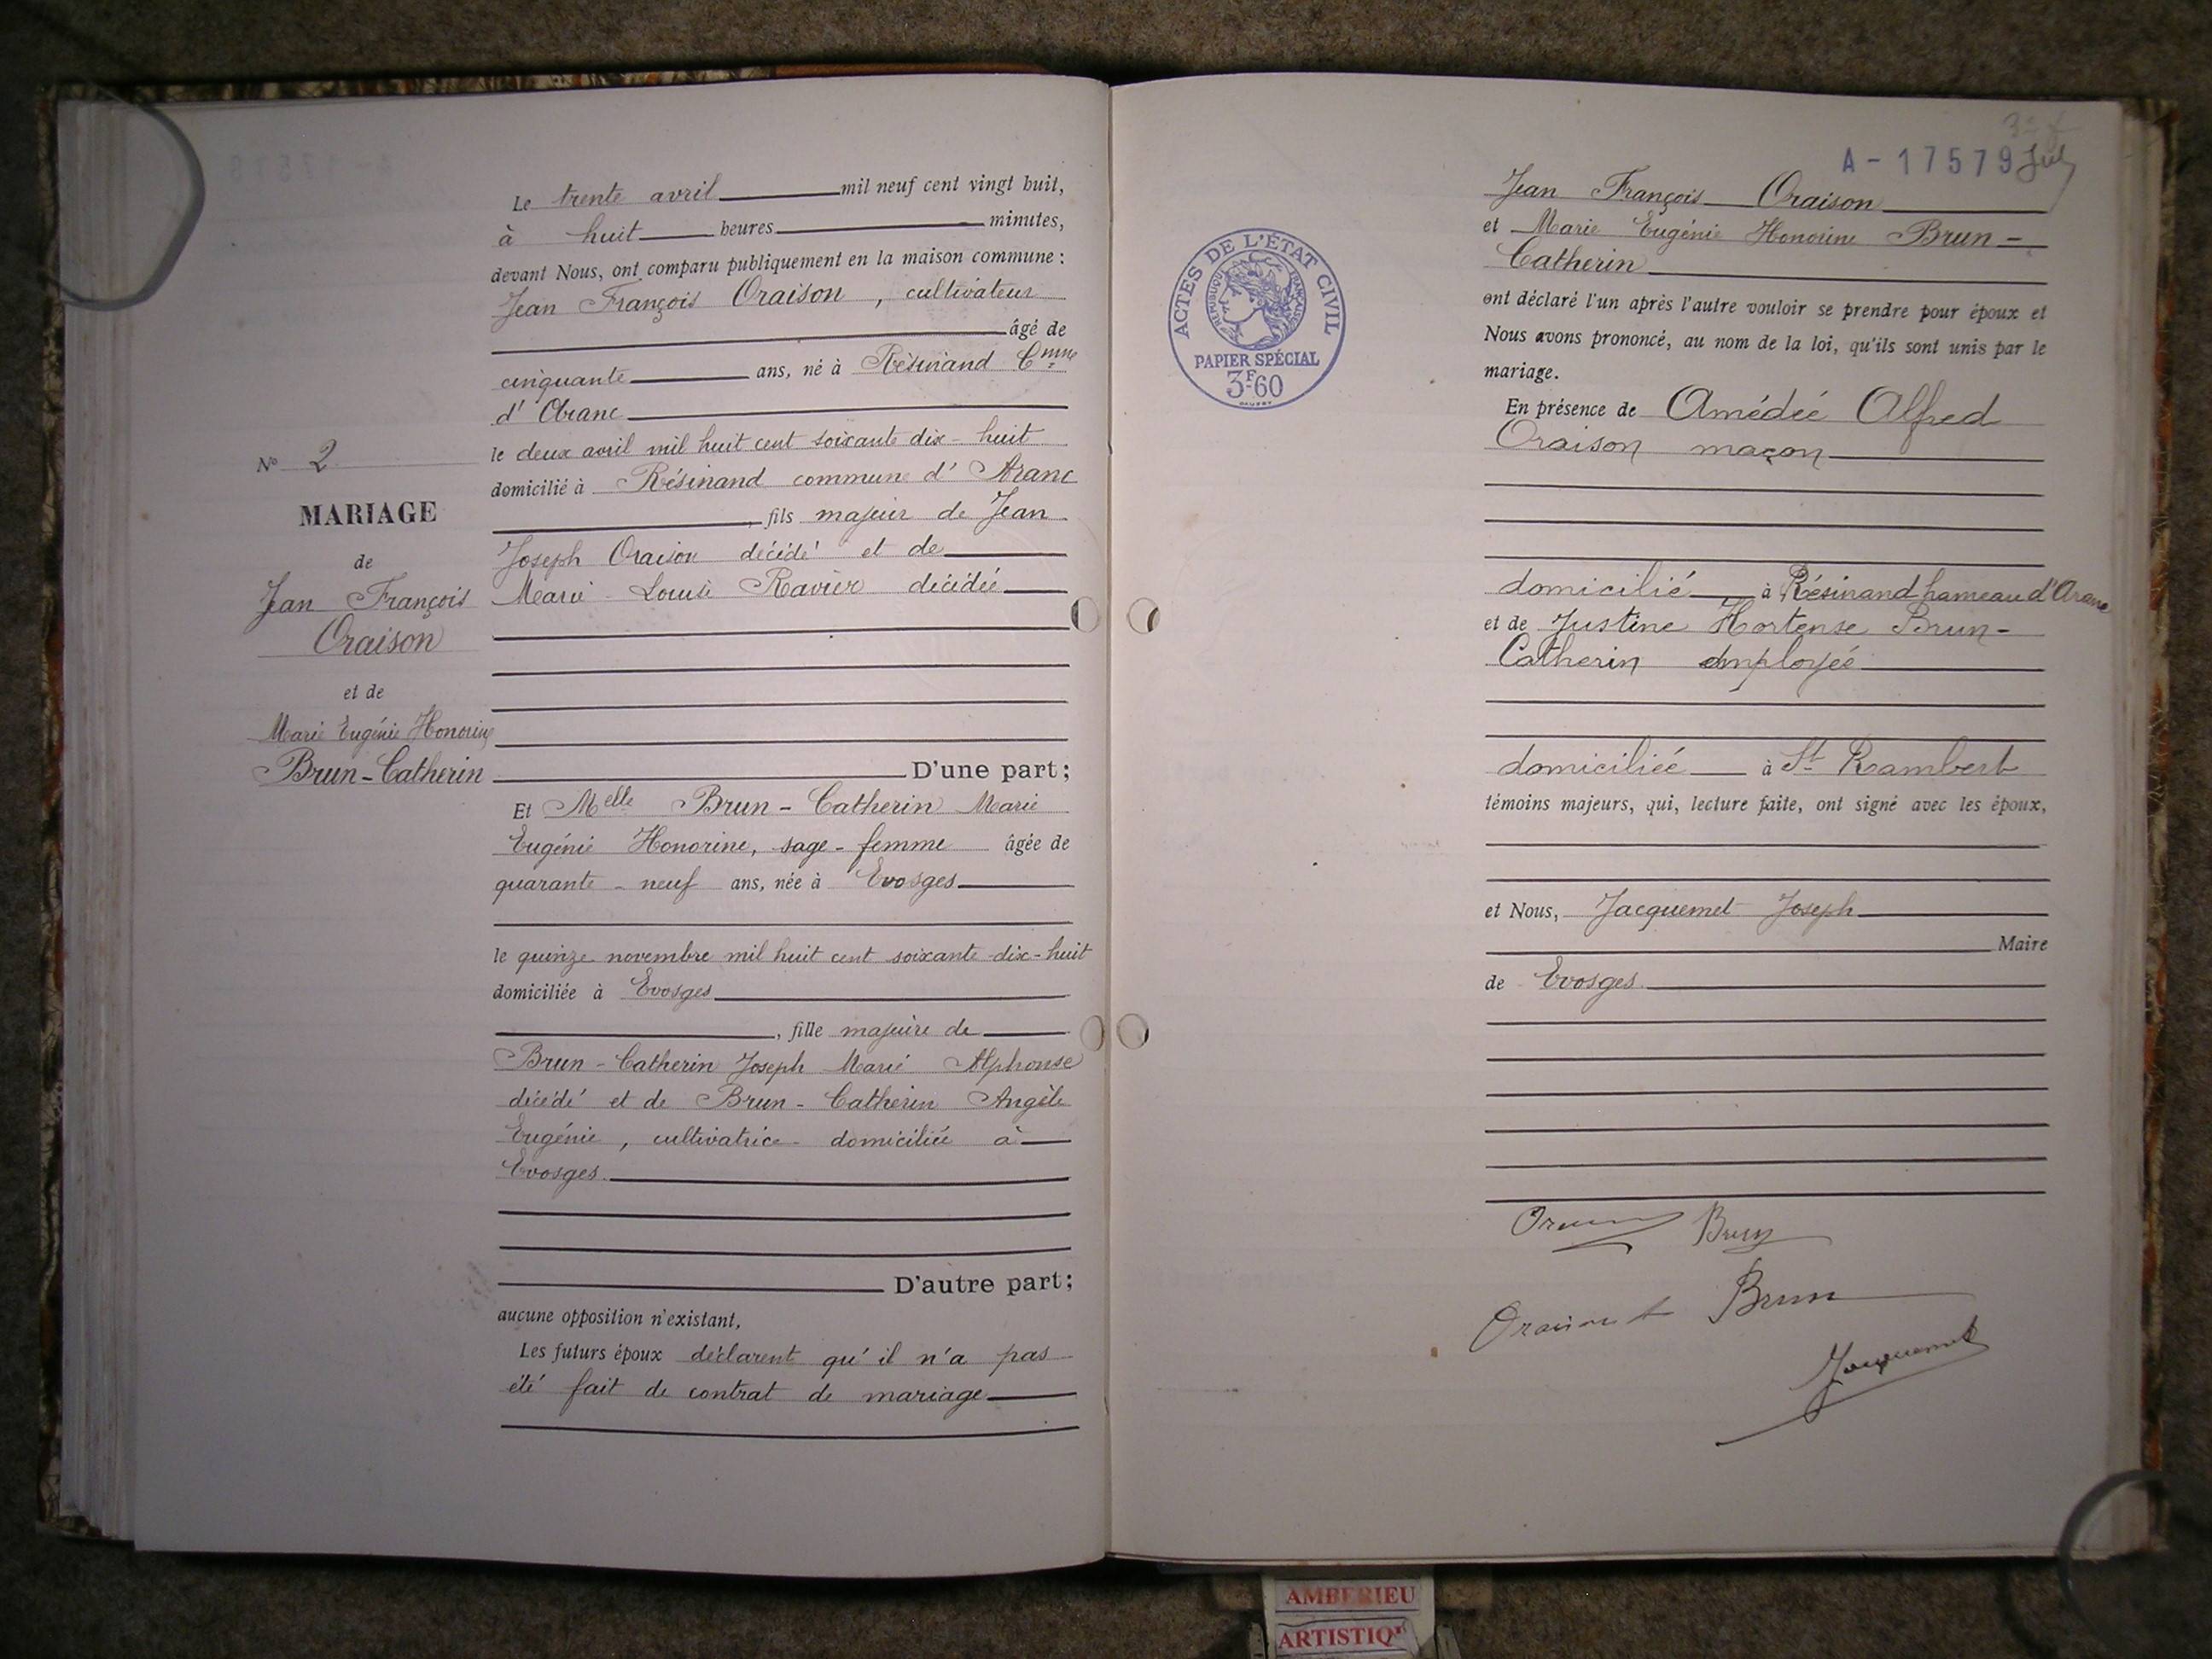 Le trente avril mil neuf cent vingt huit,
à huit heures minutes,
devant Nous, ont comparu publiquement en la maison commune :
Jean François Oraison, cultivateur
âgé de
cinquante ans, né à Résinand Cmne
d'Aranc
le deux avril mil huit cent soixante dix-huit
domicilié à Résinand commune d'Aranc
, fils majeur de Jean
Joseph Oraison décédé et de
Marie Louise Ravier décédée
N° 2
MARIAGE
de
Jean François
Oraison
et de
Marie Eugénie Honorine
Brun-Catherin
D'une part;
Et Melle Brun-Catherin Marie
Eugénie Honorine, sage-femme âgée de
quarante-neuf ans, née à Evosges
le quinze novembre mil huit cent soixante-dix-huit
domiciliée à Evosges
, fille majeure de
Brun-Catherin Joseph Marie Alphonse
décédé et de Brun-Catherin Angèle
Eugénie, cultivatrice domiciliée à
Evosges.
D'autre part;
aucune opposition n'existant,
Les futurs époux déclarent qu'il n'a pas
été fait de contrat de mariage
A-17579
Jean François Oraison
et Marie Eugénie Honorine Brun-
Catherin
ont déclaré l'un après l'autre vouloir se prendre pour époux et
Nous avons prononcé, au nom de la loi, qu'ils sont unis par le
mariage.
En présence de Amédée Alfred
Oraison maçon
domicilié à Résinand hameau d'Aranc
et de Justine Hortense Brun-
Catherin employée
domiciliée à St Rambert
témoins majeurs, qui, lecture faite, ont signé avec les époux,
et Nous, Jacquemet Joseph
Maire
de Evosges.
Brun
Brun
Jacquemet
ACTES DE L'ÉTAT CIVIL
RÉPUBLIQUE FRANÇAISE
PAPIER SPÉCIAL
3F60
AMBERIEU
ARTISTIQ